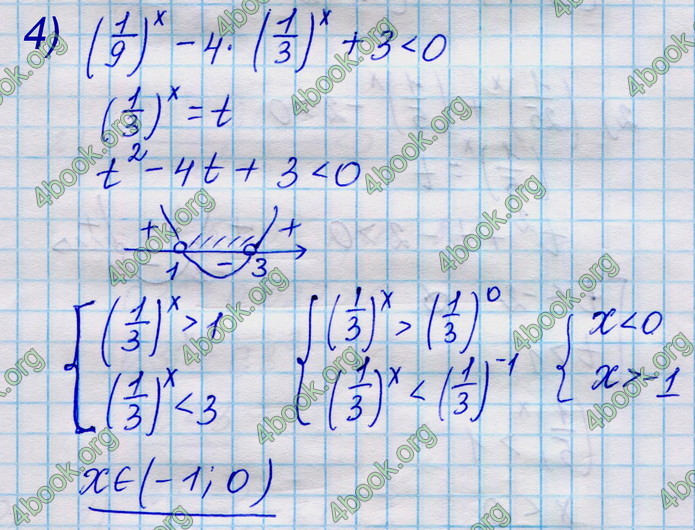 4) (1/9)^x - 4 · (1/3)^x + 3 < 0
(1/3)^x = t
t^2 - 4t + 3 < 0
+ - +
1 3
{ (1/3)^x > 1 { (1/3)^x > (1/3)^0 { x < 0
(1/3)^x < 3 (1/3)^x < (1/3)^-1 x > -1
x ∈ (-1; 0)
4book.org